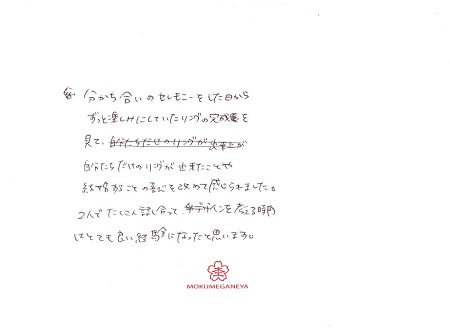 分かち合いのセレモニーをした日から
ずっと楽しみにしていたリングの完成を
見て、自分たちだけのリングが出来上が
自分たちだけのリングが出来たことや
結婚することの喜びを改めて感じられました。
2人でたくさん話し合って、デザインを考える時間
はとても良い経験になったと思います。
MOKUMEGANEYA